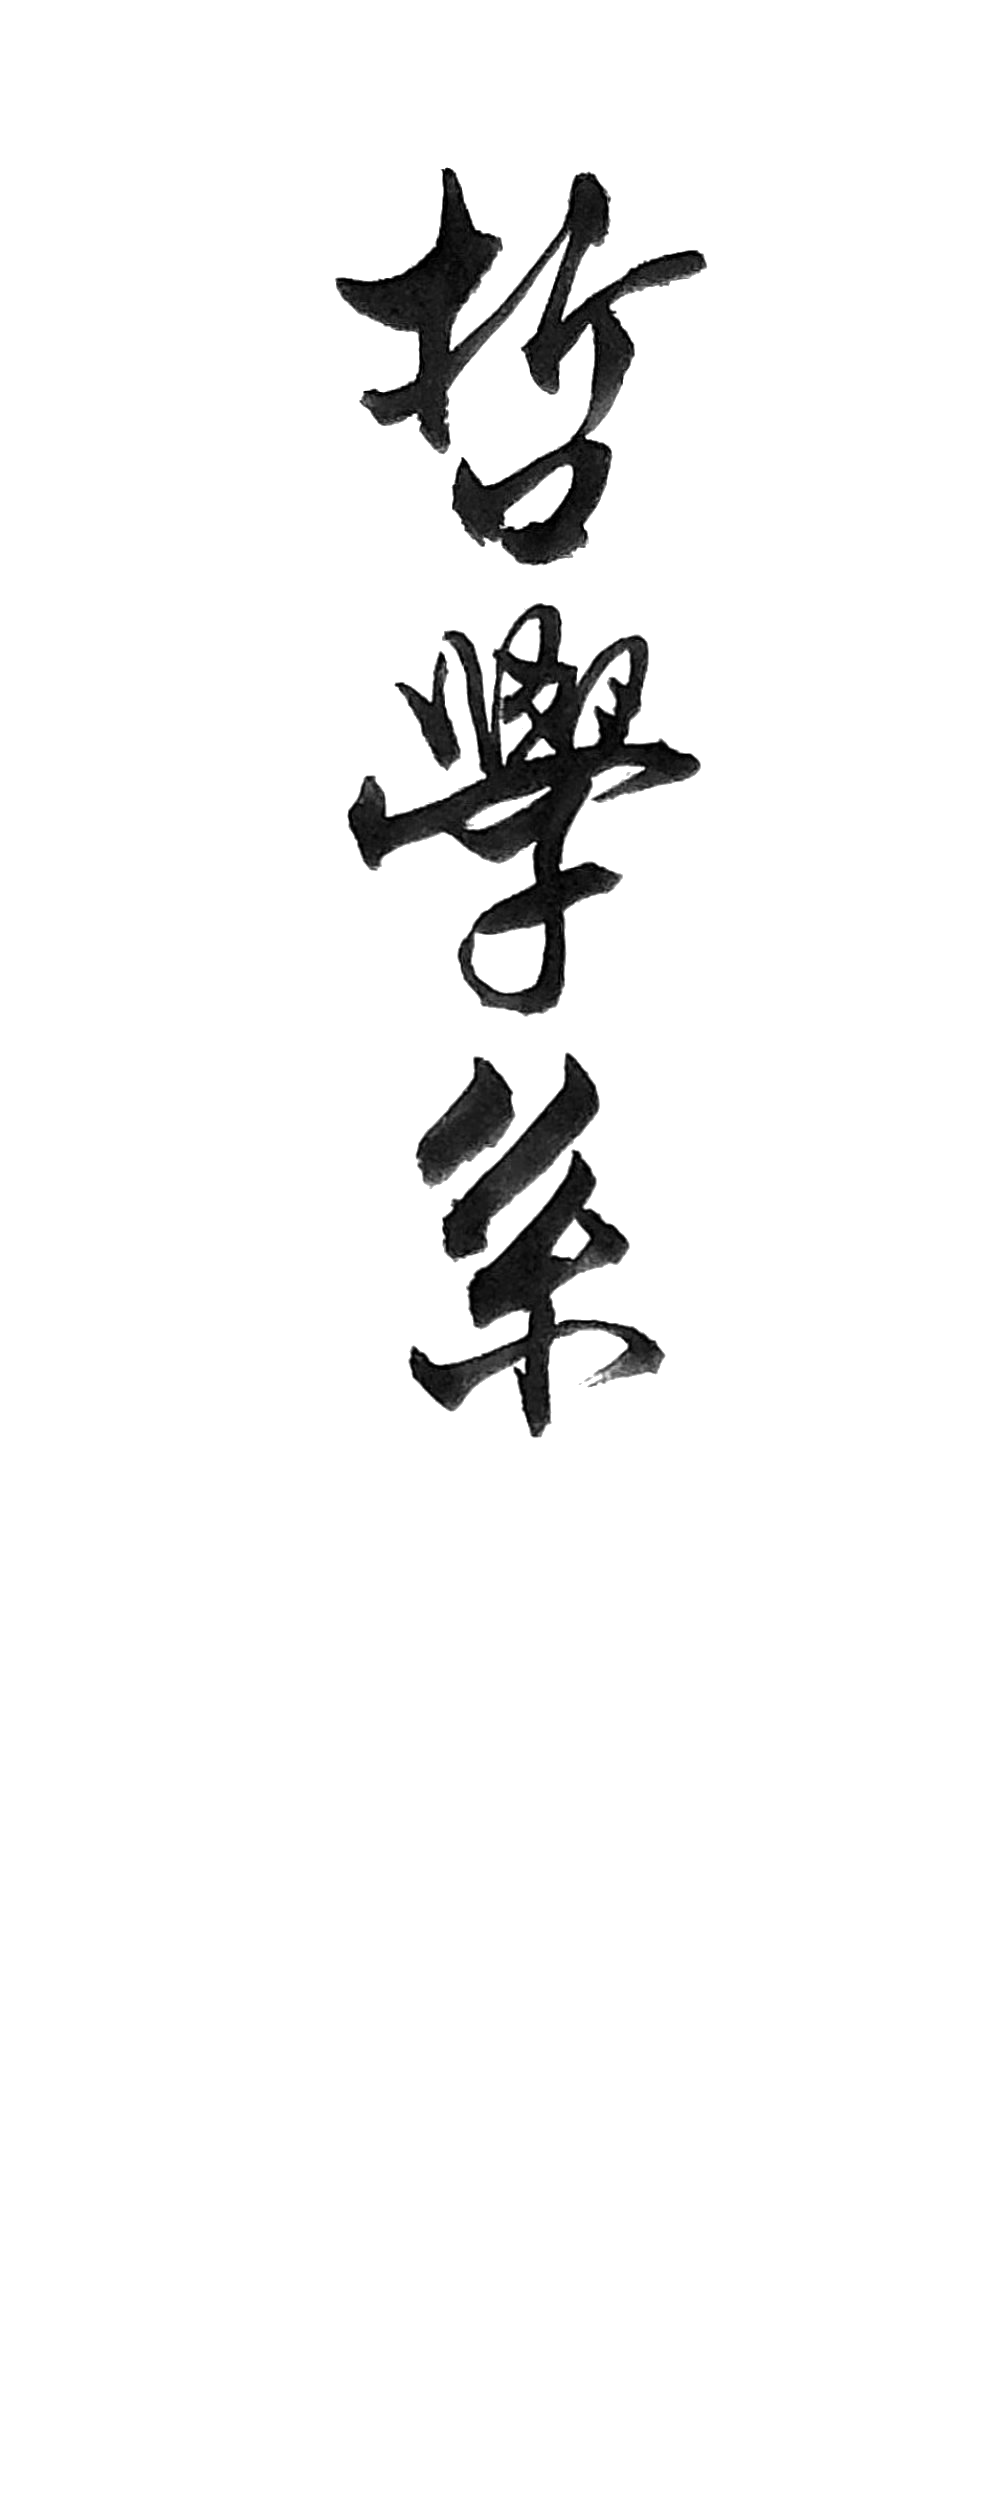 哲學系